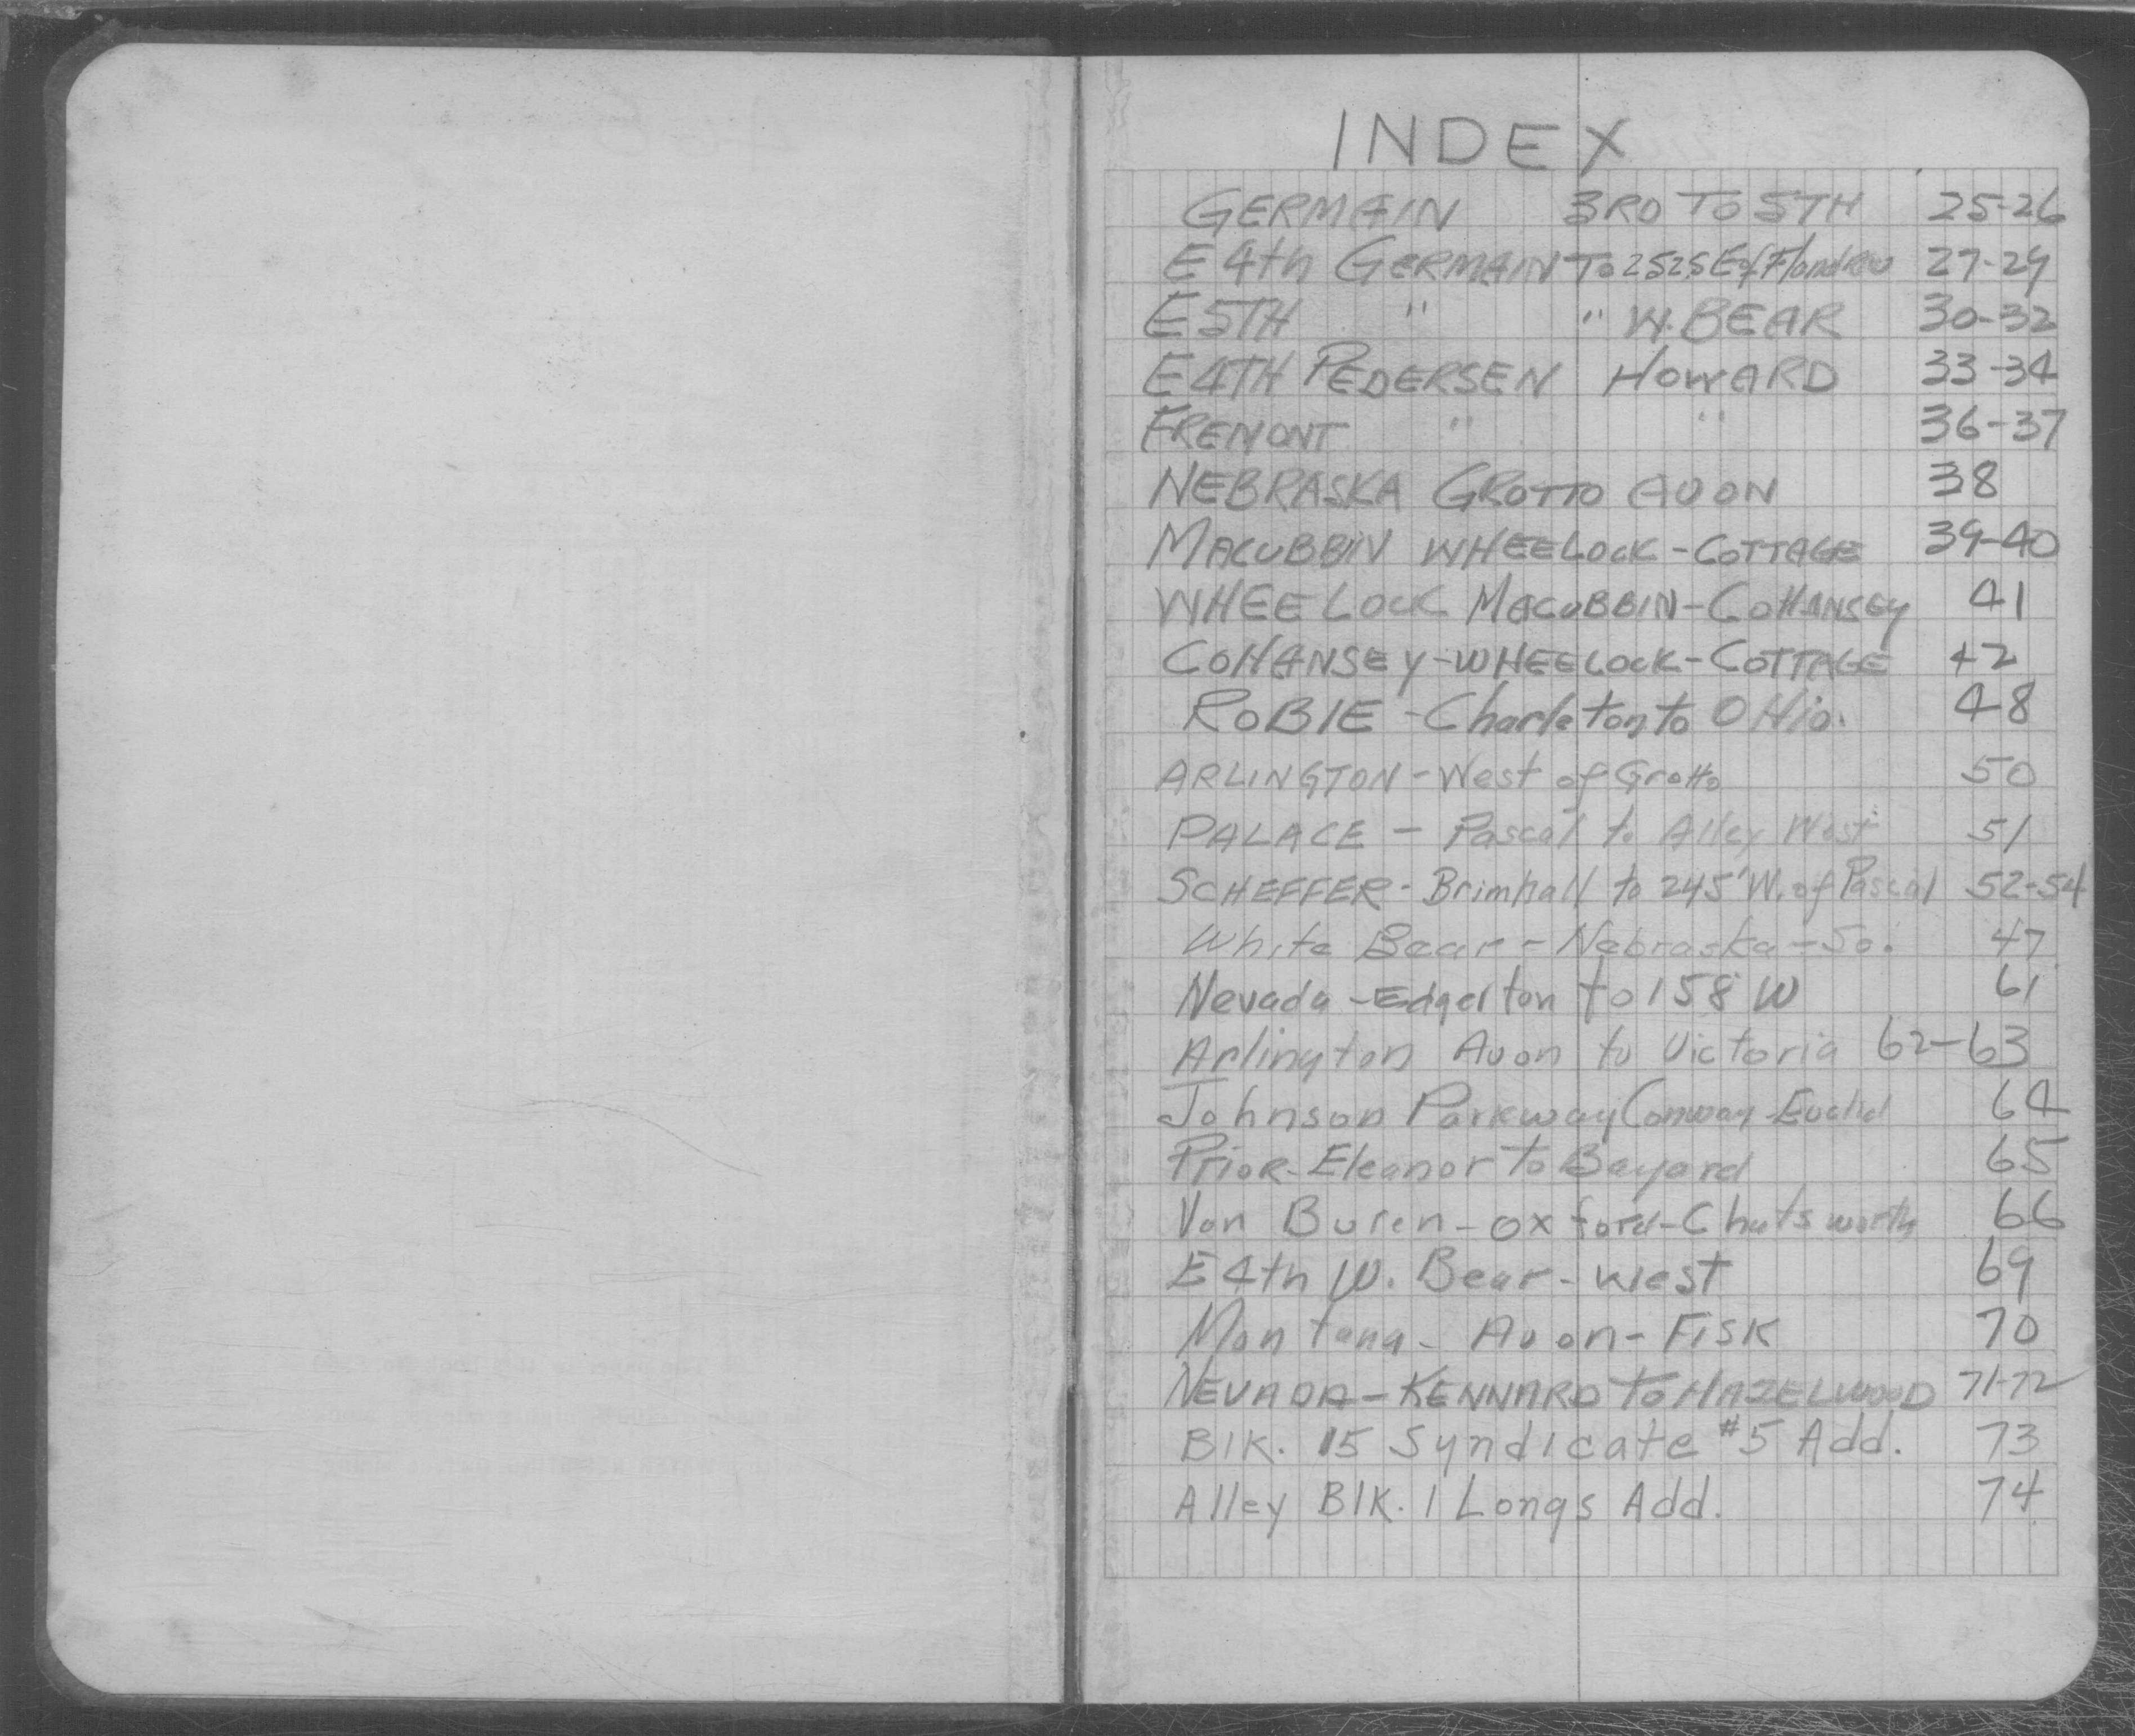 INDEX
GERMAIN 3RD TO 5TH 25-26
E 4th GERMAIN To 2525 E of Flandrau 27-29
E 5TH " " W. BEAR 30-32
E 4TH PEDERSEN HOWARD 33-34
FREMONT " " 36-37
NEBRASKA GROTTO AVON 38
MACUBBIN WHEELOCK - COTTAGE 39-40
WHEELOCK MACUBBIN - COHANSEY 41
COHANSEY - WHEELOCK - COTTAGE 42
ROBIE - Charleton to OHio. 48
ARLINGTON - West of Grotto 50
PALACE - Pascal to Alley West 51
SCHEFFER - Brimhall to 245' W. of Pascal 52-54
White Bear - Nebraska - So. 47
Nevada - Edgerton to 158 W 61
Arlington Avon to Victoria 62-63
Johnson Parkway Conway - Euclid 64
Prior - Eleanor to Bayard 65
Van Buren - oxford - Chatsworth 66
E 4th W. Bear - West 69
Montana - Avon - Fisk 70
NEVADA - KENNARD TO HAZELWOOD 71-72
Blk. 15 Syndicate #5 Add. 73
Alley Blk. 1 Longs Add. 74